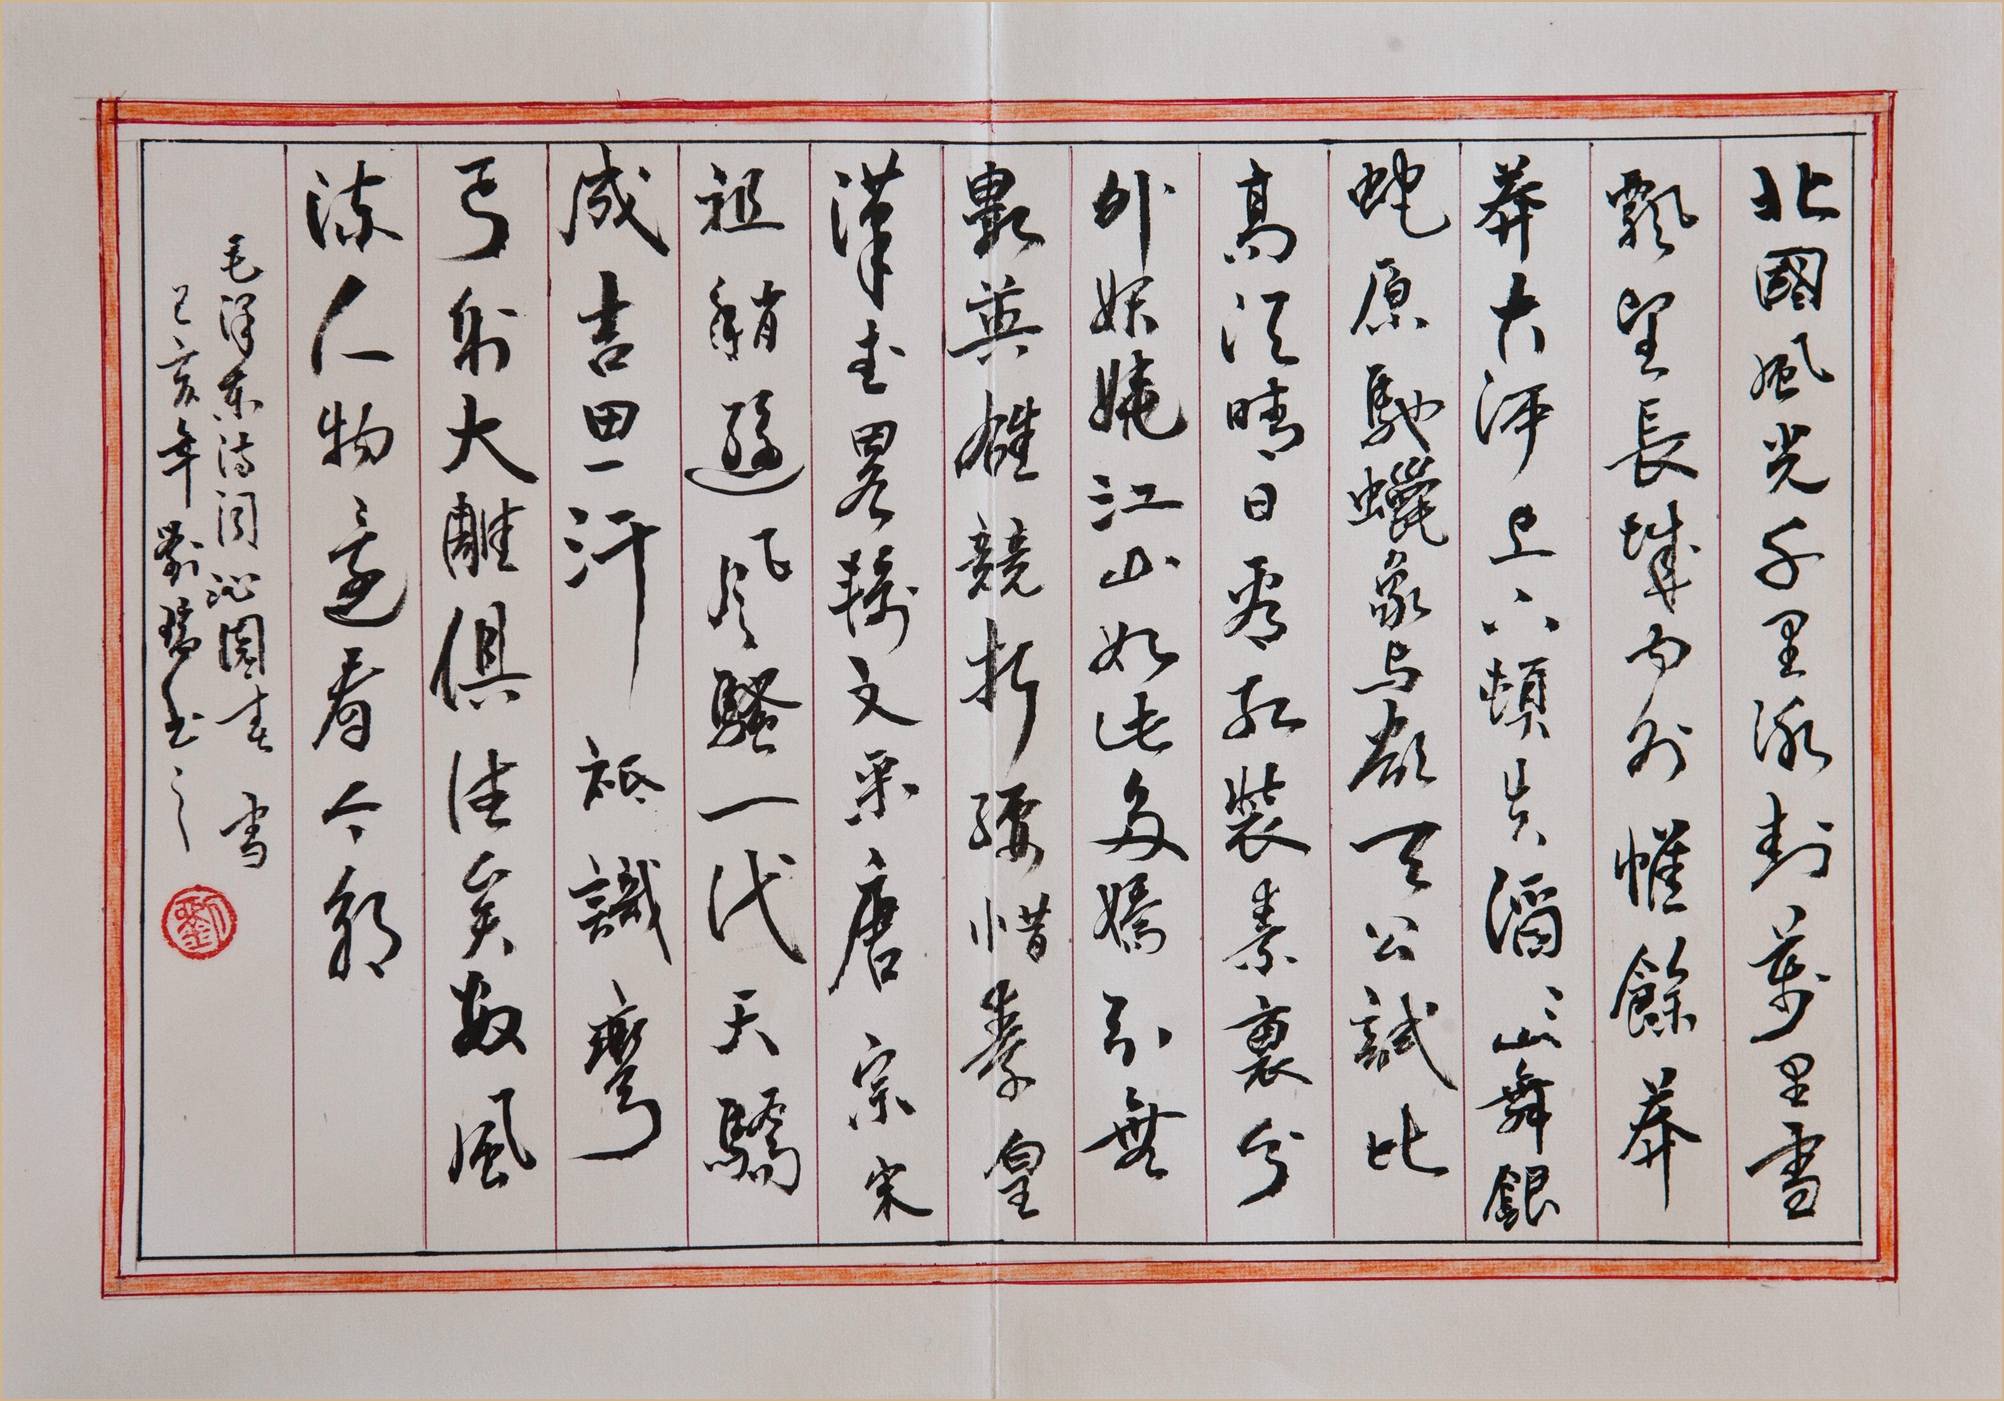 北國風光千里冰封萬里雪
飄望長城内外惟餘莽
莽大河上下頓失滔〻山舞銀
蛇原馳蠟象与欲天公試比
高須晴日看紅裝素裹分
外妖嬈江山如此多嬌引無
數英雄競折腰惜秦皇
漢武畧輸文采唐宗宋
祖稍遜風騷一代天驕
成吉思汗祗識彎
弓射大雕俱往矣數風
流人物還看今朝
毛澤东詩詞沁園春 雪
己亥年劉瑞玉
劉